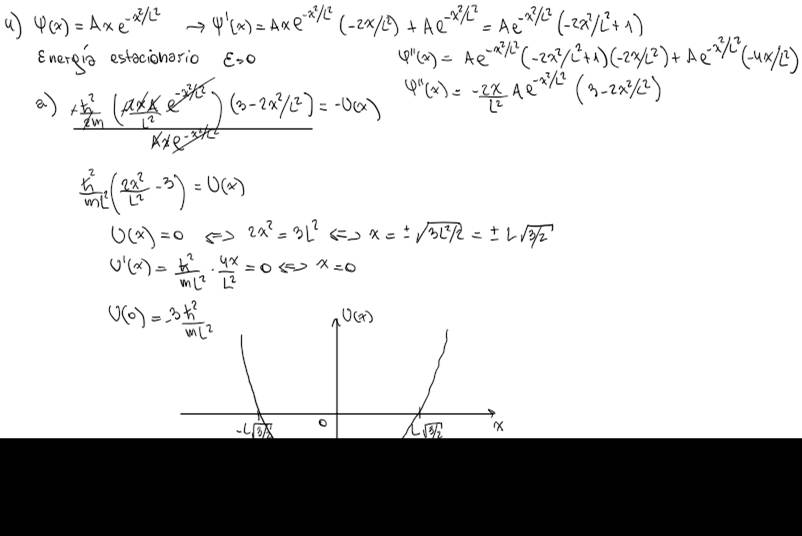 4) ψ(x) = Axe^{-x²/L²} → ψ'(x) = Axe^{-x²/L²} (-2x/L²) + Ae^{-x²/L²} = Ae^{-x²/L²} (-2x²/L²+1)
Energía estacionario E=0
ψ''(x) = Ae^{-x²/L²} (-2x²/L²+1)(-2x/L²) + Ae^{-x²/L²} (-4x/L²)
ψ''(x) = -2x/L² Ae^{-x²/L²} (3-2x²/L²)
a) +ħ²/2m (2xA/L² e^{-x²/L²}) (3-2x²/L²) / Axe^{-x²/L²} = -U(x)
ħ²/mL² (2x²/L² - 3) = U(x)
U(x) = 0 ⇔ 2x² = 3L² ⇔ x = ±√3L²/2 = ± L√3/2
U'(x) = ħ²/mL² · 4x/L² = 0 ⇔ x = 0
U(0) = -3ħ²/mL²
U(x)
-L√3/2 0 L√3/2 x